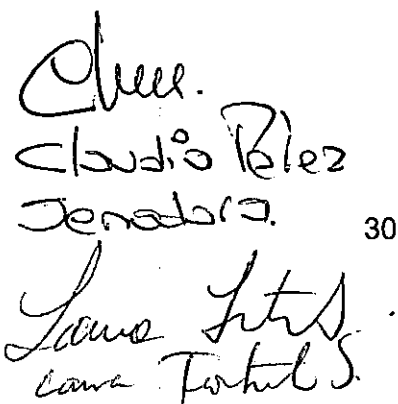 Claudia Pelez
Senadora.
30
Laura
Laura Fortich S.